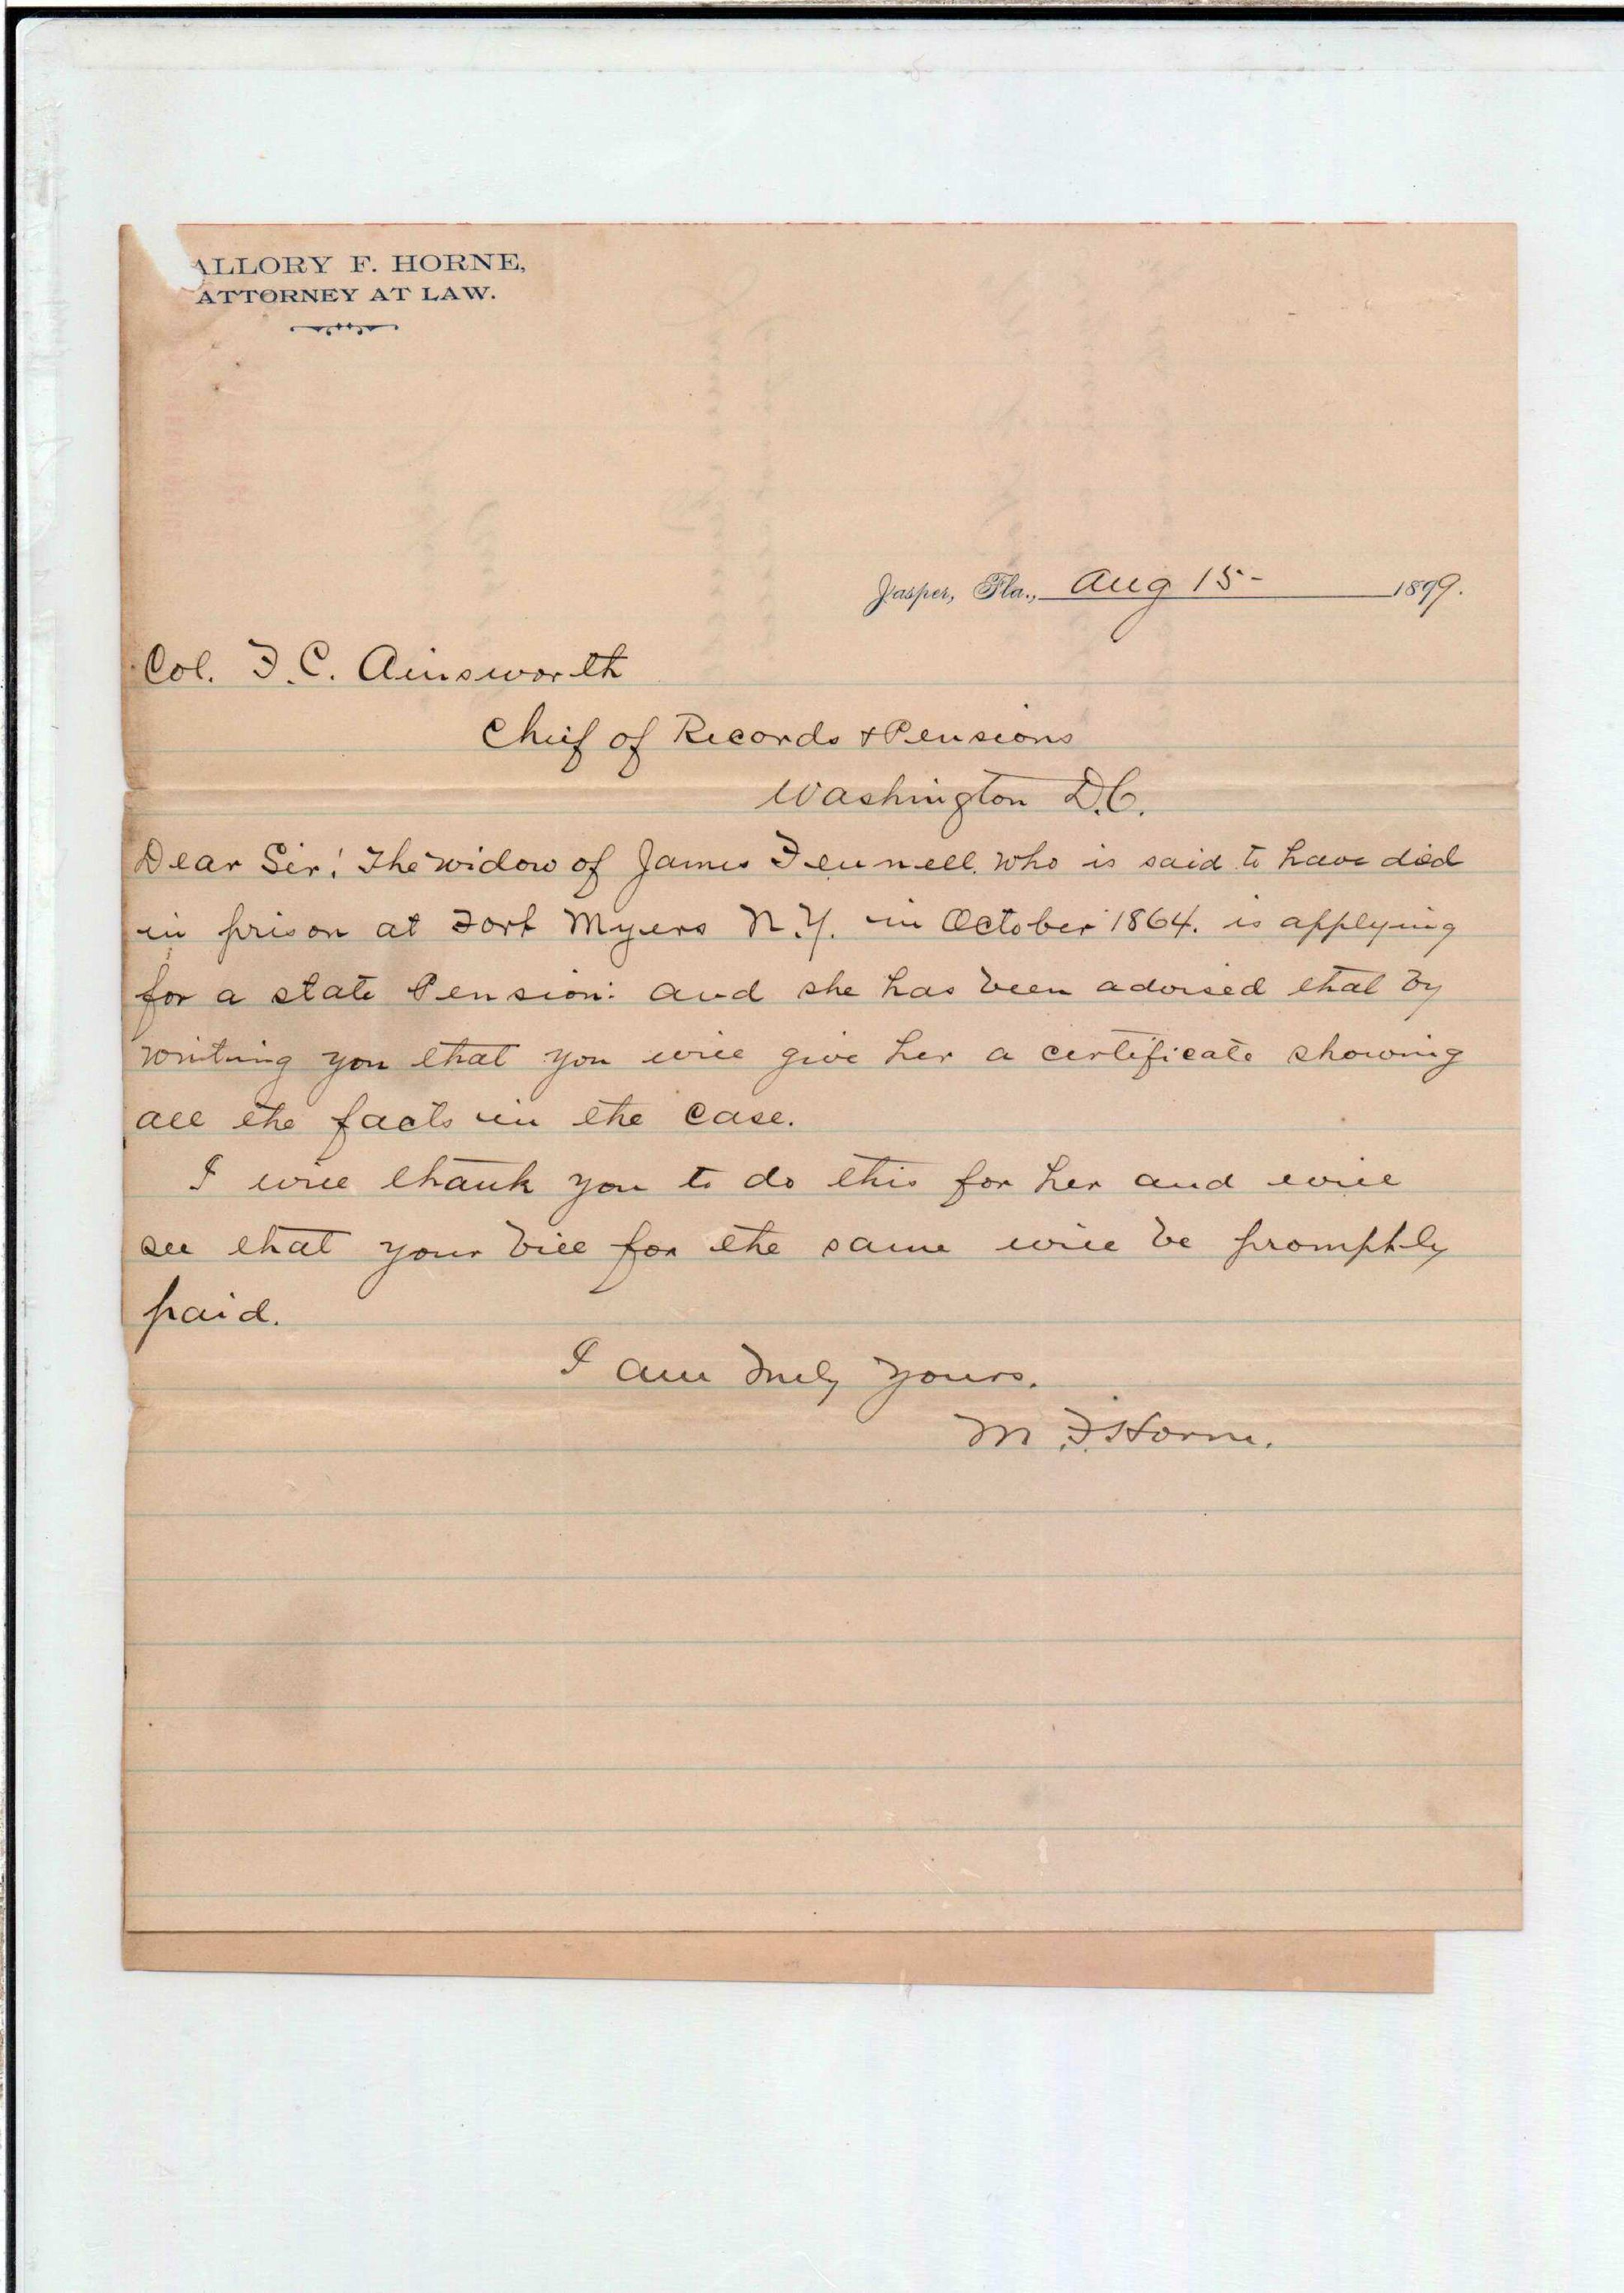 ALLORY F. HORNE,
ATTORNEY AT LAW.
Jasper, Fla., Aug 15- 1899.
Col. F. C. Ainsworth
Chief of Records & Pensions
Washington D.C.
Dear Sir: The widow of James Fennell who is said to have died
in prison at Fort Myers N.Y. in October 1864. is applying
for a state Pension: and she has been advised that by
writing you that you will give her a certificate showing
all the facts in the case.
I will thank you to do this for her and will
see that your bill for the same will be promptly
paid.
I am truly yours.
M. F. Horne.